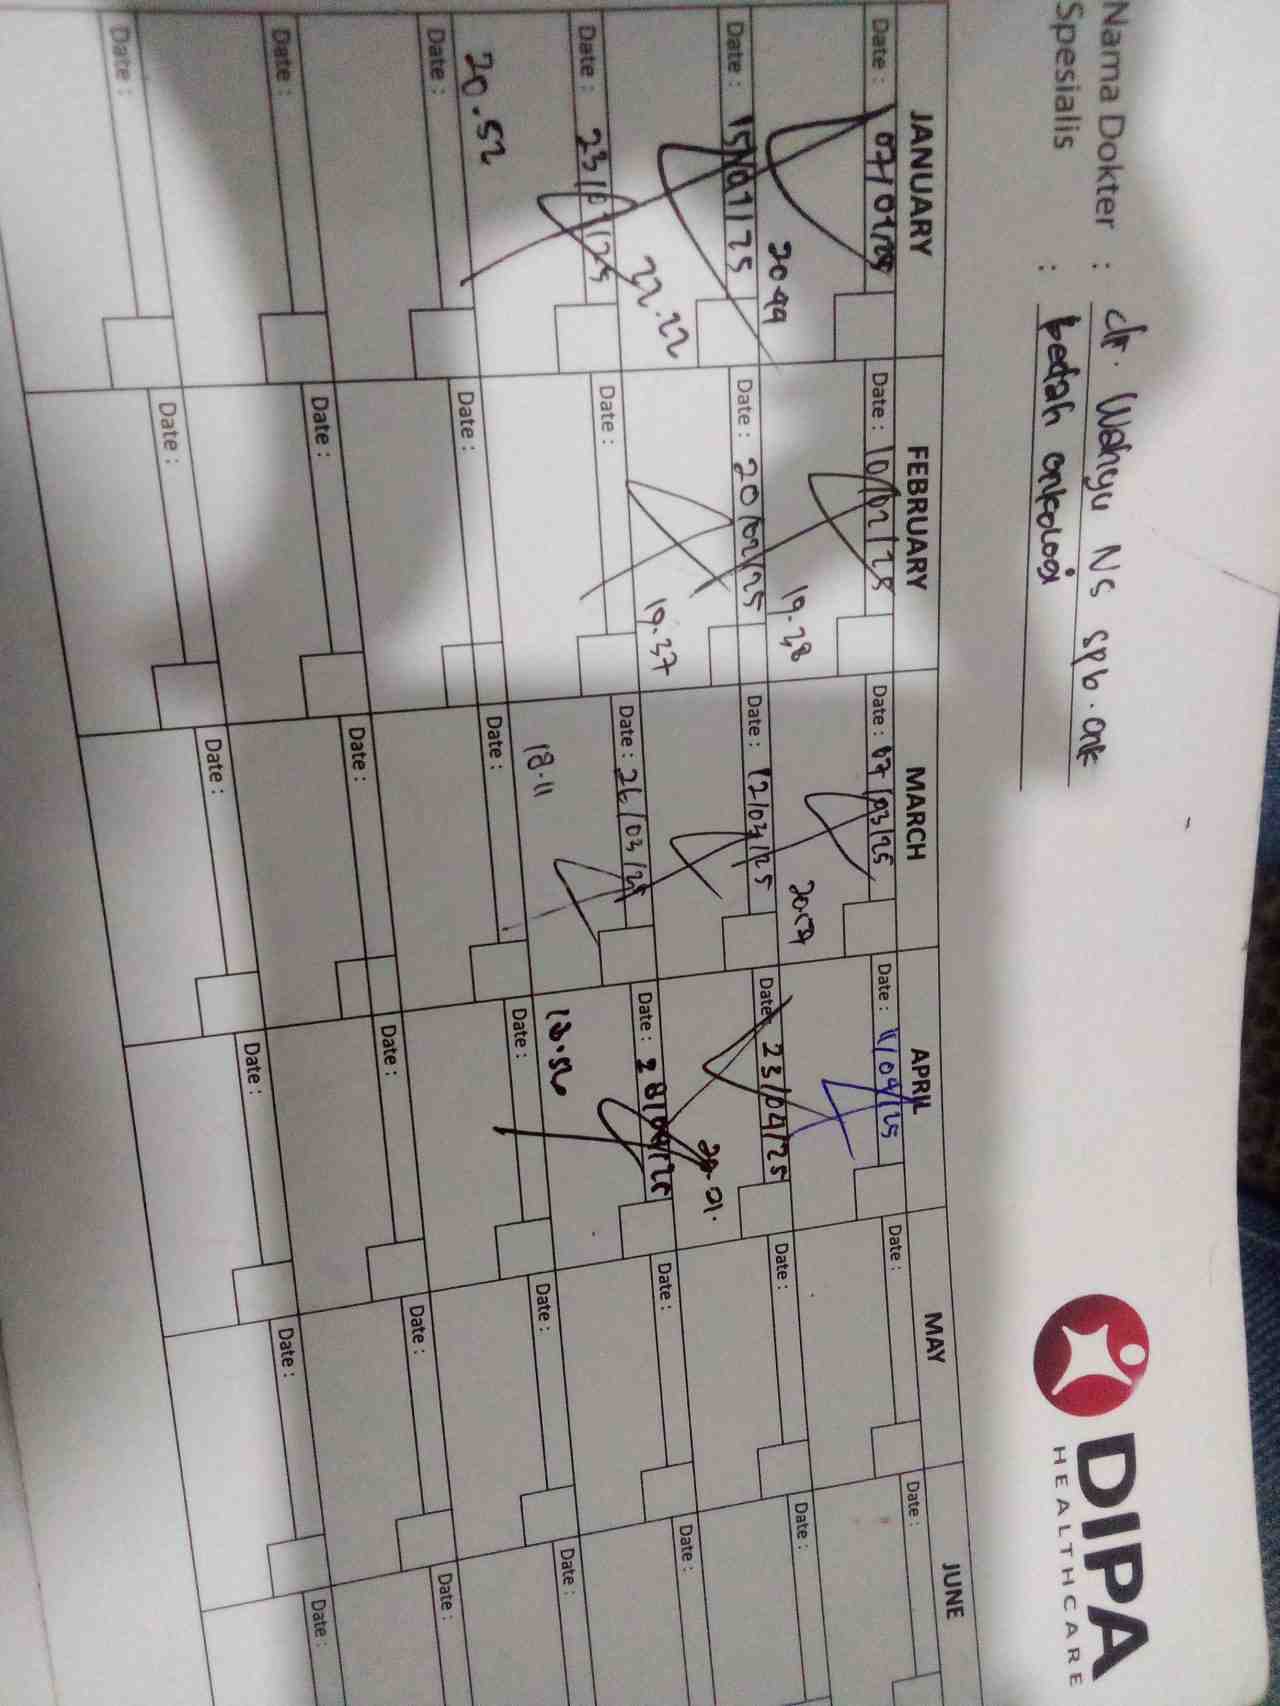 Nama Dokter : dr. Wahyu NS spb.onk
Spesialis : bedah onkologi
DIPA
HEALTHCARE
JANUARY FEBRUARY MARCH APRIL MAY JUNE
Date : 07/01/25 Date : 10/02/25 Date : 07/03/25 Date : 11/04/25 Date : Date :
20.49 19.38
Date : 15/01/25 Date : 20/02/25 Date : 12/03/25 Date : 23/04/25 Date : Date :
22.22 19.37 20.01.
Date : 23/01/25 Date : Date : 26/03/25 Date : 28/04/25 Date : Date :
20.52 18.11 18.56
Date : Date : Date : Date : Date : Date :
Date : Date : Date : Date : Date : Date :
Date : Date : Date : Date : Date : Date :